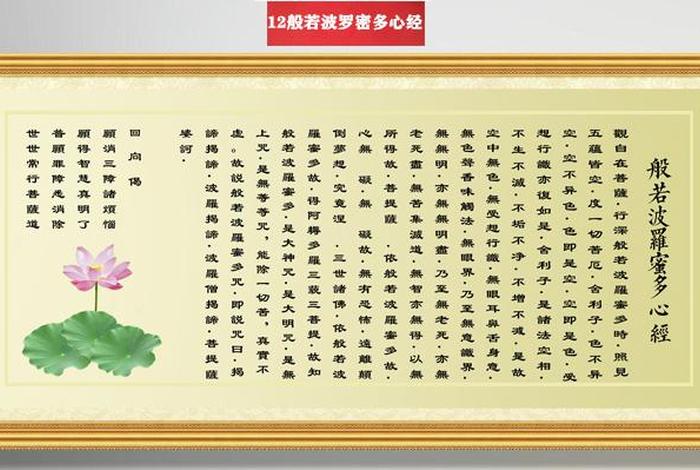 12般若波罗密多心经
般若波羅蜜多心經
觀自在菩薩·行深般若波羅蜜多時·照見
五蘊皆空·度一切苦厄·舍利子·色不異
空·空不異色·色即是空·空即是色·受
想行識亦復如是·舍利子·是諸法空相·
不生不滅·不垢不净·不增不減·是故
空中無色·無受想行識·無眼耳鼻舌身意·
無色聲香味觸法·無眼界·乃至無意識界·
無無明·亦無無明盡·乃至無老死·亦無
老死盡·無苦集滅道·無智亦無得·以無
所得故·菩提薩 ·依般若波羅蜜多故·
心無 礙·無 礙故·無有恐怖·遠離顛
倒夢想·究竟涅 ·三世諸佛·依般若波
羅蜜多故·得阿耨多羅三藐三菩提·故知
般若波羅蜜多·是大神咒·是大明咒·是無
上咒·是無等等咒，能除一切苦，真實不
虛。故說般若波羅蜜多咒·即說咒曰·揭
諦揭諦·波羅揭諦·波羅僧揭諦·菩提薩
婆訶·
回向偈
願消三障諸煩惱
願得智慧真明了
普願罪障悉消除
世世常行菩薩道